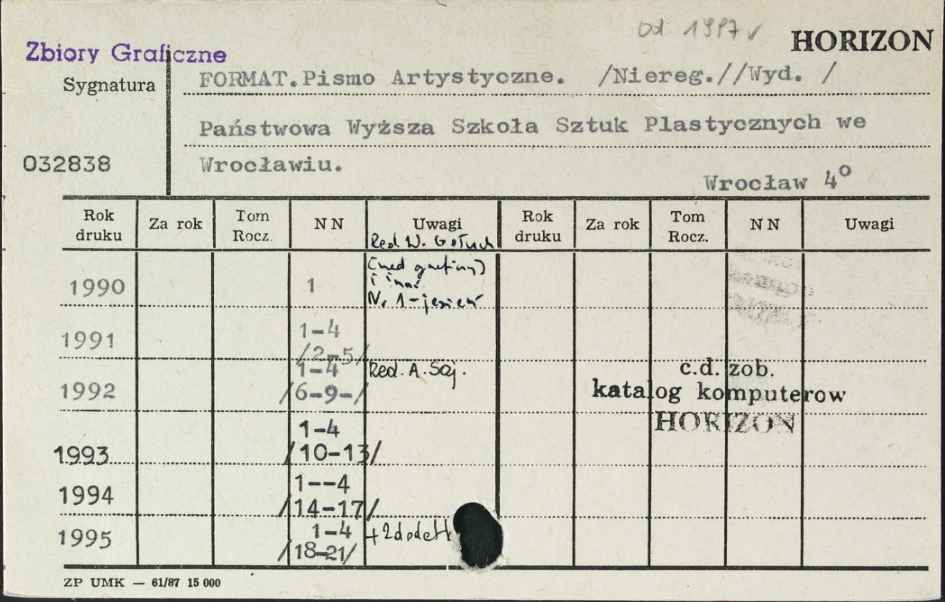 od 1997
HORIZON
Zbiory Graficzne
Sygnatura
FORMAT.Pismo Artystyczne. /Niereg.//Wyd. /
Państwowa Wyższa Szkoła Sztuk Plastycznych we
032838
Wrocławiu.
Wrocław 4°
Rok druku Za rok Tom Rocz. N N Uwagi Rok druku Za rok Tom Rocz. N N Uwagi
Red W.
1990 1 i inni
Nr 1-jesień
1991 1-4
/2-5/
1992 1-4 Red. A. Saj.
/6-9-/
c.d. zob.
katalog komputerow
HORIZON
1993 1-4
/10-13/
1994 1--4
/14-17/
1995 1-4 +2
/18-21/
ZP UMK — 61/87 15 000